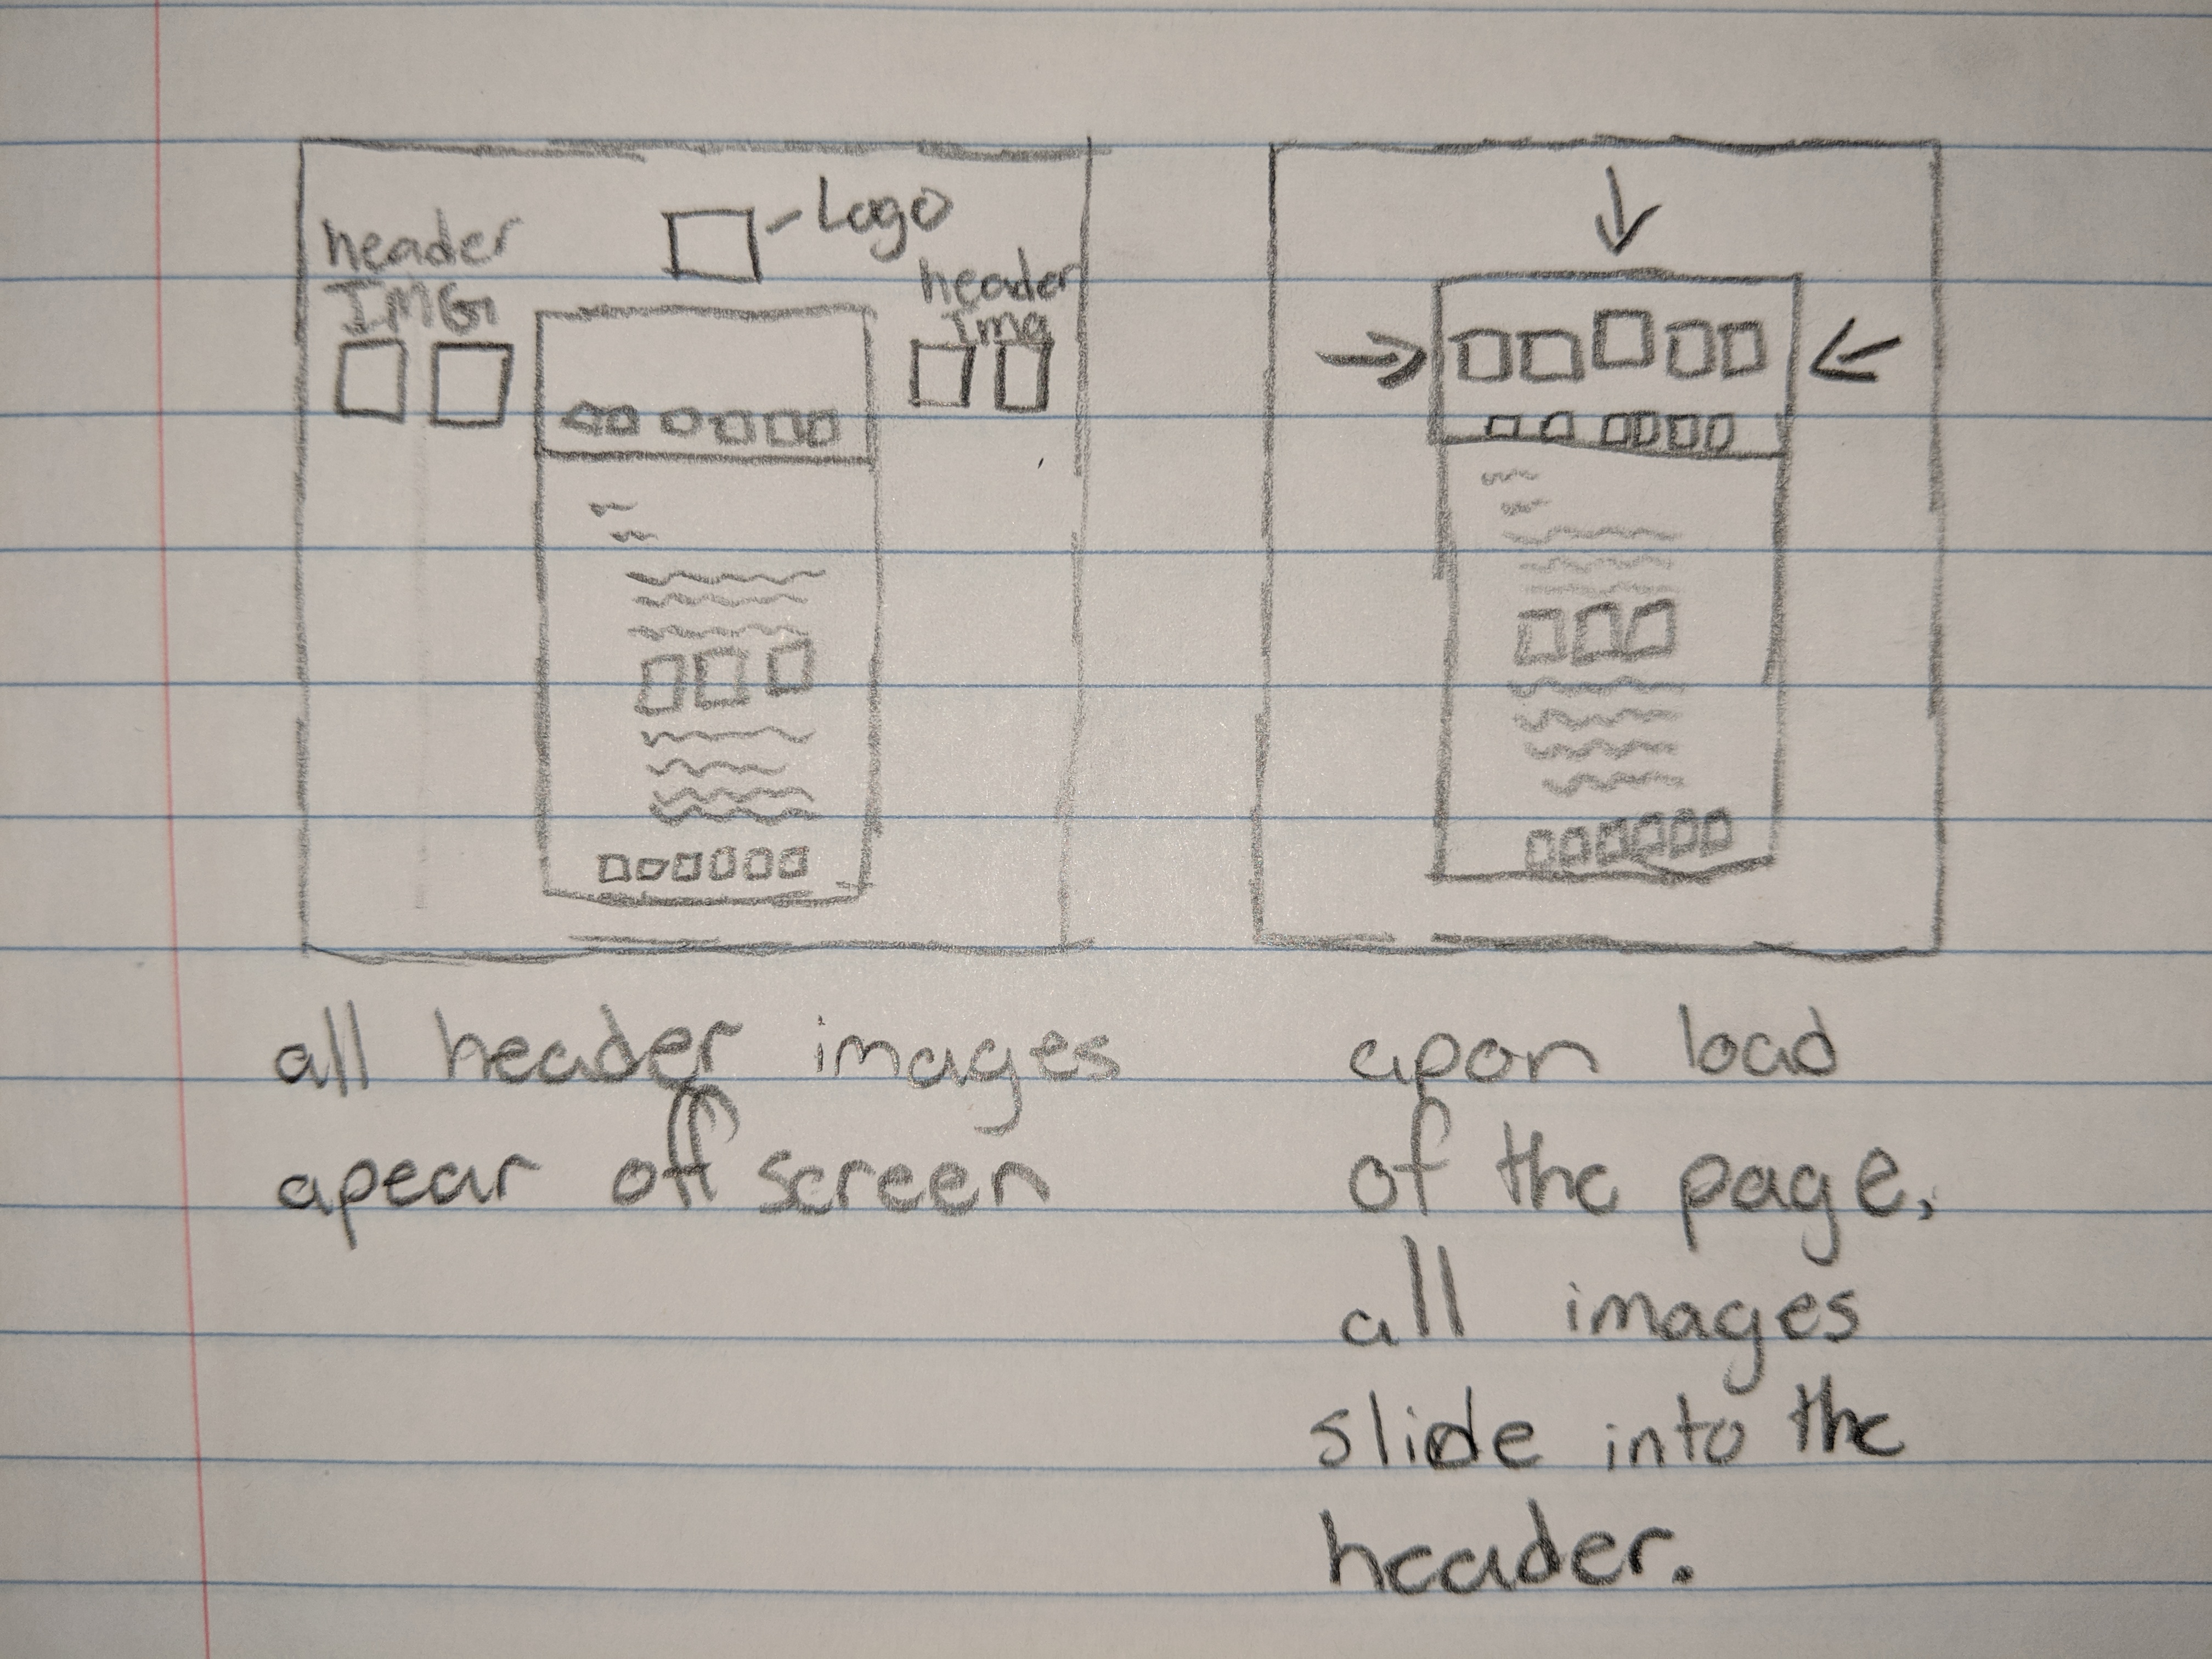 header
IMG
Logo
header
Img
all header images
apear off screen
apon load
of the page,
all images
slide into the
header.